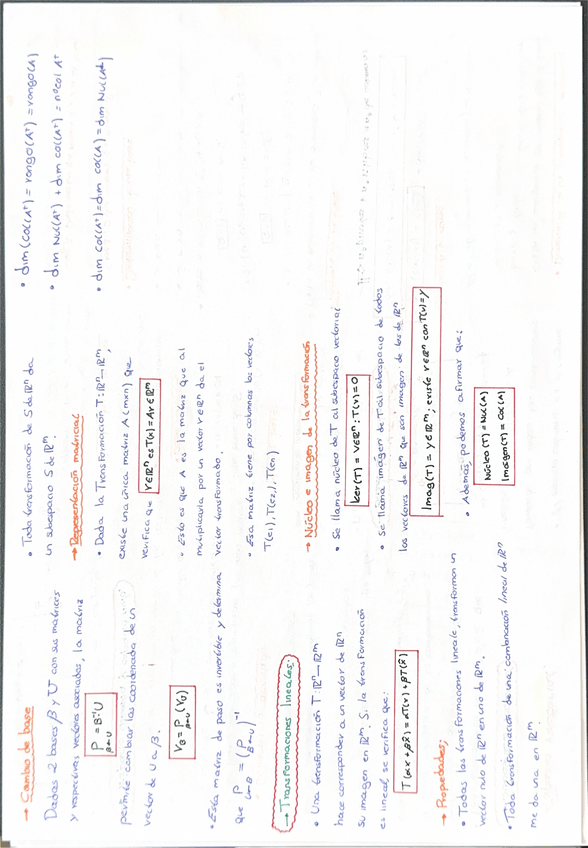 → Cambio de base
Dadas 2 bases β y U con sus matrices
y respectivos vectores asociados, la matriz
P β←U = B⁻¹U
permite cambiar las coordenada de un
vector de U a β.
Vβ = P β←U (Vu)
• Esta matriz de paso es invertible y determina
que P U←B = (P B←U)⁻¹
→ Transformaciones lineales:
• Una transformación T: ℝⁿ→ℝᵐ
hace corresponder a un vector de ℝⁿ
su imagen en ℝᵐ. Si la transformación
es lineal se verifica que:
T(αx + βx̄) = αT(x) + βT(x̄)
→ Propiedades;
• Todas las transformaciones lineale, transforman un
vector nulo de ℝⁿ en uno de ℝᵐ.
• Toda transformación de una combinación lineal de ℝⁿ
me da una en ℝᵐ
• Toda transformación de S de ℝⁿ da
un subespacio S de ℝᵐ.
→ Representación matricial
• Dada la Transformación T: ℝⁿ→ℝᵐ,
existe una única matriz A (mxn) que
verifica que V∈ℝⁿ es T(x) = Av∈ℝᵐ
- Esto es que A es la matriz que al
multiplicarla por un vector V∈ℝⁿ da el
vector transformado.
- Esa matriz tiene por columnas los vectores
T(e₁), T(e₂), T(en)
→ Núcleo e imagen de la transformación
• Se llama núcleo de T al subespacio vectorial
ker(T) = V∈ℝⁿ: T(v) = 0
• Se llama imagen de T al subespacio de todos
los vectores de ℝᵐ que son imagen de los de ℝⁿ
Imag(T) = Y∈ℝᵐ; existe V∈ℝⁿ con T(v) = y
• Además, podemos afirmar que:
Núcleo (T) = Nul(A)
Imagen(T) = Col(A)
• dim (Col(Aᵗ) = rango(Aᵗ) = rango(A)
• dim Nul(Aᵗ) + dim col(Aᵗ) = nº col Aᵗ
• dim Col(Aᵗ) = dim col(A) = dim Nul(Aᵗ)